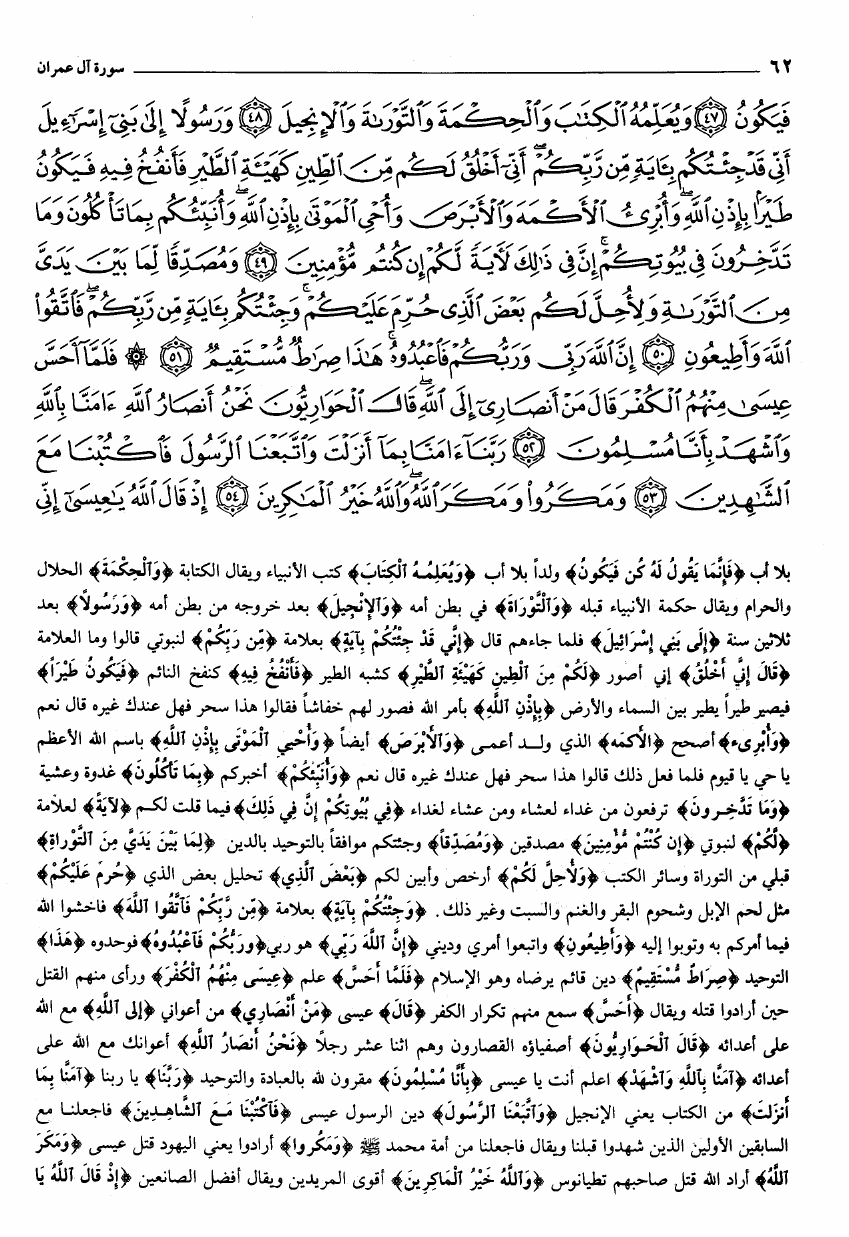 ٦٢ سورة آل عمران
فَيَكُونُ ﴿٤٧﴾ وَيُعَلِّمُهُ ٱلْكِتَٰبَ وَٱلْحِكْمَةَ وَٱلتَّوْرَىٰةَ وَٱلْإِنجِيلَ ﴿٤٨﴾ وَرَسُولًا إِلَىٰ بَنِىٓ إِسْرَٰٓءِيلَ
أَنِّى قَدْ جِئْتُكُم بِـَٔايَةٍ مِّن رَّبِّكُمْ ۖ أَنِّىٓ أَخْلُقُ لَكُم مِّنَ ٱلطِّينِ كَهَيْـَٔةِ ٱلطَّيْرِ فَأَنفُخُ فِيهِ فَيَكُونُ
طَيْرًۢا بِإِذْنِ ٱللَّهِ ۖ وَأُبْرِئُ ٱلْأَكْمَهَ وَٱلْأَبْرَصَ وَأُحْىِ ٱلْمَوْتَىٰ بِإِذْنِ ٱللَّهِ ۖ وَأُنَبِّئُكُم بِمَا تَأْكُلُونَ وَمَا
تَدَّخِرُونَ فِى بُيُوتِكُمْ ۚ إِنَّ فِى ذَٰلِكَ لَـَٔايَةً لَّكُمْ إِن كُنتُم مُّؤْمِنِينَ ﴿٤٩﴾ وَمُصَدِّقًا لِّمَا بَيْنَ يَدَىَّ
مِنَ ٱلتَّوْرَىٰةِ وَلِأُحِلَّ لَكُم بَعْضَ ٱلَّذِى حُرِّمَ عَلَيْكُمْ ۚ وَجِئْتُكُم بِـَٔايَةٍ مِّن رَّبِّكُمْ ۖ فَٱتَّقُوا۟
ٱللَّهَ وَأَطِيعُونِ ﴿٥٠﴾ إِنَّ ٱللَّهَ رَبِّى وَرَبُّكُمْ فَٱعْبُدُوهُ ۗ هَٰذَا صِرَٰطٌ مُّسْتَقِيمٌ ﴿٥١﴾ ۞ فَلَمَّآ أَحَسَّ
عِيسَىٰ مِنْهُمُ ٱلْكُفْرَ قَالَ مَنْ أَنصَارِىٓ إِلَى ٱللَّهِ ۖ قَالَ ٱلْحَوَارِيُّونَ نَحْنُ أَنصَارُ ٱللَّهِ ءَامَنَّا بِٱللَّهِ
وَٱشْهَدْ بِأَنَّا مُسْلِمُونَ ﴿٥٢﴾ رَبَّنَآ ءَامَنَّا بِمَآ أَنزَلْتَ وَٱتَّبَعْنَا ٱلرَّسُولَ فَٱكْتُبْنَا مَعَ
ٱلشَّٰهِدِينَ ﴿٥٣﴾ وَمَكَرُوا۟ وَمَكَرَ ٱللَّهُ ۖ وَٱللَّهُ خَيْرُ ٱلْمَٰكِرِينَ ﴿٥٤﴾ إِذْ قَالَ ٱللَّهُ يَٰعِيسَىٰٓ إِنِّى
بلا أب ﴿فَإِنَّمَا يَقُولُ لَهُ كُن فَيَكُونُ﴾ ولداً بلا أب ﴿وَيُعَلِّمُهُ ٱلْكِتَابَ﴾ كتب الأنبياء ويقال الكتابة ﴿وَٱلْحِكْمَةَ﴾ الحلال
والحرام ويقال حكمة الأنبياء قبله ﴿وَٱلتَّوْرَاةَ﴾ في بطن أمه ﴿وَٱلإِنْجِيلَ﴾ بعد خروجه من بطن أمه ﴿وَرَسُولاً﴾ بعد
ثلاثين سنة ﴿إِلَى بَنِي إِسْرَائِيلَ﴾ فلما جاءهم قال ﴿إِنِّي قَدْ جِئْتُكُمْ بِآيَةٍ﴾ بعلامة ﴿مِّن رَبِّكُمْ﴾ لنبوتي قالوا وما العلامة
﴿قَالَ إِنِّي أَخْلُقُ﴾ إني أصور ﴿لَكُمْ مِنَ ٱلطِينِ كَهَيْئَةِ ٱلطَّيْرِ﴾ كشبه الطير ﴿فَأَنْفُخُ فِيهِ﴾ كنفخ النائم ﴿فَيَكُونُ طَيْرَاً﴾
فيصير طيراً يطير بين السماء والأرض ﴿بِإِذْنِ ٱللَّهِ﴾ بأمر الله فصور لهم خفاشاً فقالوا هذا سحر فهل عندك غيره قال نعم
﴿وَأُبْرِىء﴾ أصحح ﴿الأَكْمَه﴾ الذي ولد أعمى ﴿وَٱلأَبْرَصَ﴾ أيضاً ﴿وَأُحْيِي ٱلْمَوْتَى بِإِذْنِ ٱللَّهِ﴾ باسم الله الأعظم
يا حي يا قيوم فلما فعل ذلك قالوا هذا سحر فهل عندك غيره قال نعم ﴿وَأُنَبِّئُكُمْ﴾ أخبركم ﴿بِمَا تَأْكُلُونَ﴾ غدوة وعشية
﴿وَمَا تَدَّخِرونَ﴾ ترفعون من غداء لعشاء ومن عشاء لغداء ﴿فِي بُيُوتِكُمْ إِنَّ فِي ذَلِكَ﴾ فيما قلت لكم ﴿لآيَةً﴾ لعلامة
﴿لَّكُمْ﴾ لنبوتي ﴿إِن كُنْتُمْ مُّؤْمِنِينَ﴾ مصدقين ﴿وَمُصَدِّقاً﴾ وجئتكم موافقاً بالتوحيد بالدين ﴿لِمَا بَيْنَ يَدَيَّ مِنَ ٱلتَّوْرَاةِ﴾
قبلي من التوراة وسائر الكتب ﴿وَلأُحِلَّ لَكُمْ﴾ أرخص وأبين لكم ﴿بَعْضَ ٱلَّذِي﴾ تحليل بعض الذي ﴿حُرِمَ عَلَيْكُمْ﴾
مثل لحم الإبل وشحوم البقر والغنم والسبت وغير ذلك. ﴿وَجِئْتُكُمْ بِآيَةٍ﴾ بعلامة ﴿مِّن رَّبِّكُمْ فَٱتَّقُوا ٱللَّهَ﴾ فاخشوا الله
فيما أمركم به وتوبوا إليه ﴿وَأَطِيعُونِ﴾ واتبعوا أمري وديني ﴿إِنَّ ٱللَّهَ رَبِّي﴾ هو ربي ﴿ورَبُّكُمْ فَٱعْبُدُوهُ﴾ فوحدوه ﴿هَذَا﴾
التوحيد ﴿صِرَاطٌ مُّسْتَقِيمٌ﴾ دين قائم يرضاه وهو الإسلام ﴿فَلَمَّا أَحَسَّ﴾ علم ﴿عِيسَى مِنْهُمُ ٱلْكُفْرَ﴾ ورأى منهم القتل
حين أرادوا قتله ويقال ﴿أَحَسَّ﴾ سمع منهم تكرار الكفر ﴿قَالَ﴾ عيسى ﴿مَنْ أَنْصَارِي﴾ من أعواني ﴿إِلى ٱللَّهِ﴾ مع الله
على أعدائه ﴿قَالَ ٱلْحَوَارِيُّونَ﴾ أصفياؤه القصارون وهم اثنا عشر رجلاً ﴿نَحْنُ أَنصَارُ ٱللَّهِ﴾ أعوانك مع الله على
أعدائه ﴿آمَنَّا بِٱللَّهِ وَٱشْهَدْ﴾ اعلم أنت يا عيسى ﴿بِأَنَّا مُسْلِمُونَ﴾ مقرون لله بالعبادة والتوحيد ﴿رَبَّنَا﴾ يا ربنا ﴿آمَنَّا بِمَا
أَنزَلَتَ﴾ من الكتاب يعني الإنجيل ﴿وَٱتَّبَعْنَا ٱلرَّسُولَ﴾ دين الرسول عيسى ﴿فَٱكْتُبْنَا مَعَ ٱلشَّاهِدِينَ﴾ فاجعلنا مع
السابقين الأولين الذين شهدوا قبلنا ويقال فاجعلنا من أمة محمد ﷺ ﴿وَمَكَروا﴾ أرادوا يعني اليهود قتل عيسى ﴿وَمَكَرَ
ٱللَّهُ﴾ أراد الله قتل صاحبهم تطيانوس ﴿وَٱللَّهُ خَيْرُ ٱلْمَاكِرِينَ﴾ أقوى المريدين ويقال أفضل الصانعين ﴿إِذْ قَالَ ٱللَّهُ يَا